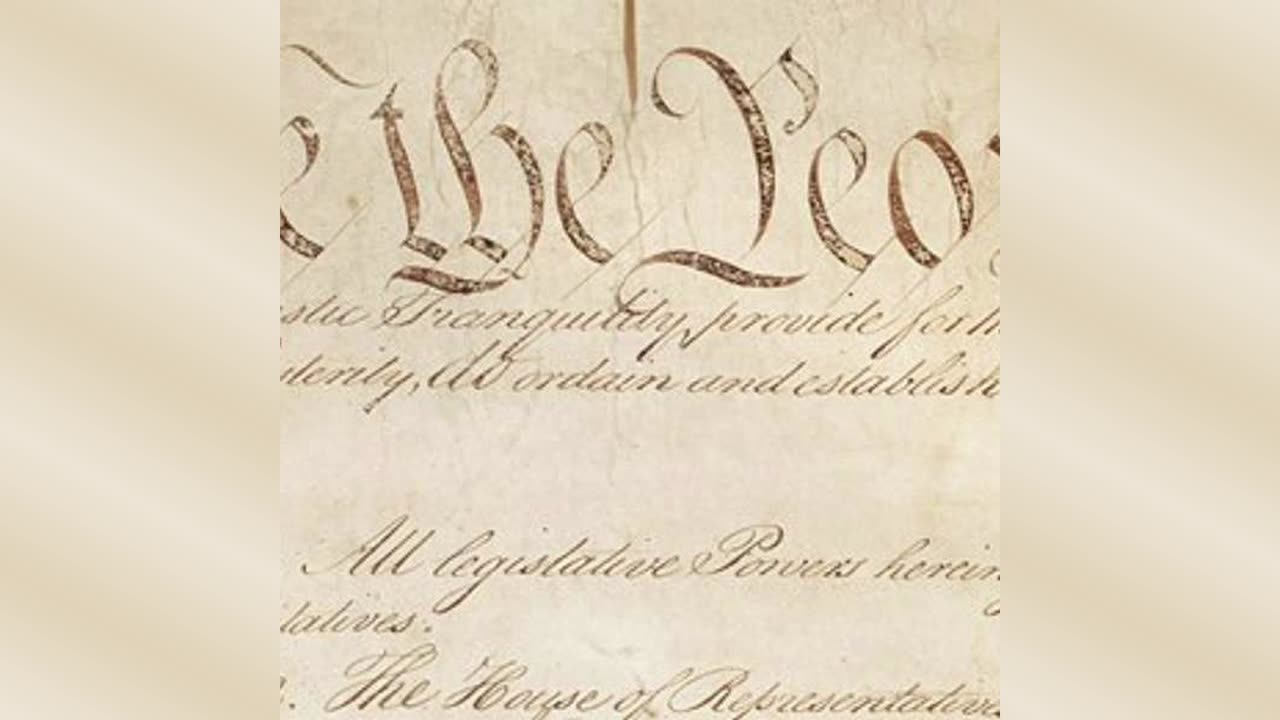 e the Peo
stic Tranquility, provide for th
sterity, do ordain and establish
All legislative Powers herein
tatives.
. The House of Representatives